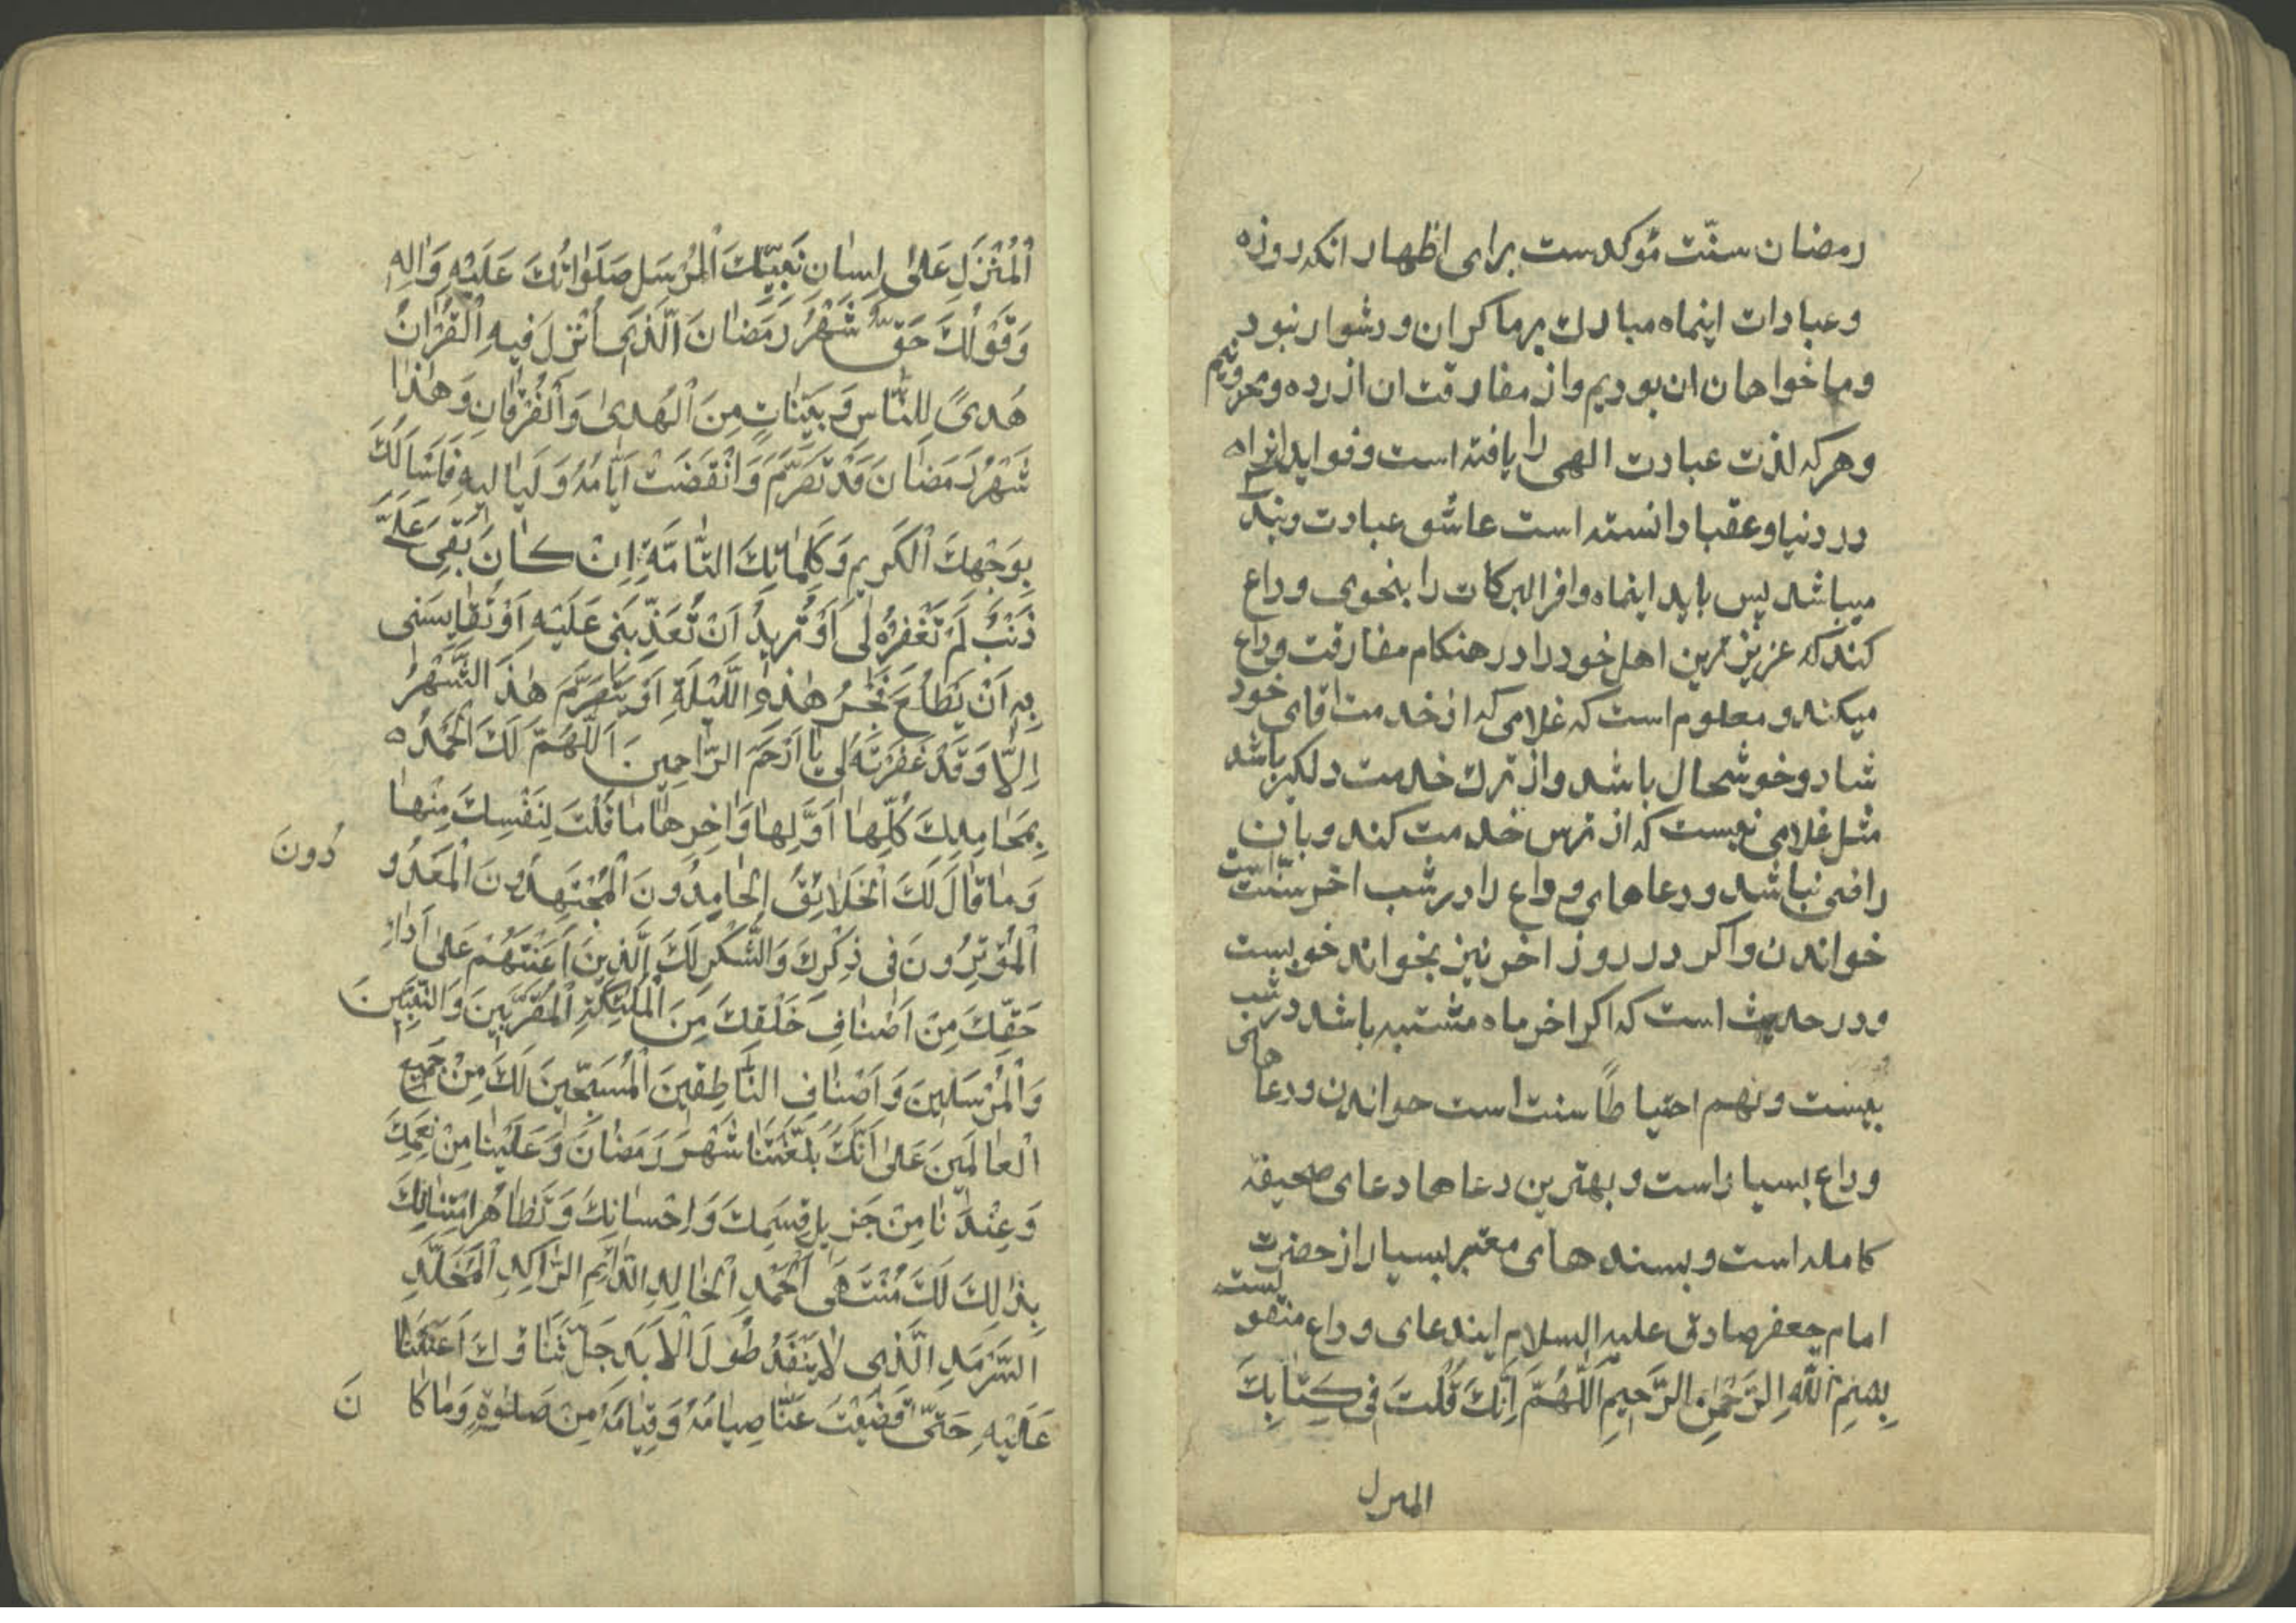 رمضان سنّت مؤکدست برای اظهار انکه روزه
وعبادات اینماه مبارك برما کران ودشوار نبود
وما خواهان ان بودیم واز مفارقت ان ازرده ومحزونیم
وهرکه لذت عبادت الهی را یافته است وفواید انرا
در دنیا وعقبا دانسته است عاشق عبادت وبندکی
میباشد پس باید اینماه وافر البرکات را بنحوی وداع
کند که عزیزترین اهل خود را در هنکام مفارقت وداع
میکند ومعلوم است که غلامی که از خدمت اقای خود
شاد وخوشحال باشد واز ترك خدمت دلکیر باشد
مثل غلامی نیست که از ترس خدمت کند وبان
راضی نباشد ودعاهای وداع را در شب اخر سنّت است
خواندن واکر در روز اخر نیز بخواند خوبست
ودر حدیث است که اکر اخر ماه مشتبه باشد در شب
بیست ونهم احتیاطاً سنت است خواندن ودعا های
وداع بسیار است وبهترین دعاها دعای صحیفه
کامله است وبسند های معتبر بسیار از حضرت
امام جعفر صادق علیه السلام ایندعای وداع منقولست
بِسْمِ اللّٰهِ الرَّحْمٰنِ الرَّحِيمِ اَللّٰهُمَّ اِنَّكَ قُلْتَ فِی کِتٰابِكَ
المنزل
اَلْمُنْزَلِ عَلیٰ لِسٰانِ نَبِیِّكَ الْمُرْسَلِ صَلَوٰاتُكَ عَلَیْهِ وَاٰلِهِ
وَقَوْلُكَ حَقٌّ شَهْرُ رَمَضٰانَ الَّذِی اُنْزِلَ فِیهِ الْقُرْاٰنُ
هُدیً لِلنّٰاسِ وَبَیِّنٰاتٍ مِنَ الْهُدیٰ وَالْفُرْقٰانِ وَهٰذٰا
شَهْرُ رَمَضٰانَ قَدْ تَصَرَّمَ وَانْقَضَتْ اَیّٰامُهُ وَلَیٰالِیهِ فَاَسْاَلُكَ
بِوَجْهِكَ الْکَرِیمِ وَکَلِمٰاتِكَ التّٰامَّةِ اِنْ کٰانَ بَقِیَ عَلَیَّ
ذَنْبٌ لَمْ تَغْفِرْهُ لِی اَوْ تُرِیدُ اَنْ تُعَذِّبَنِی عَلَیْهِ اَوْ تُقٰایِسَنِی
بِهِ اَنْ یَطْلُعَ فَجْرُ هٰذِهِ اللَّیْلَةِ اَوْ یَتَصَرَّمَ هٰذَا الشَّهْرُ
اِلّٰا وَقَدْ غَفَرْتَهُ لِی یٰا اَرْحَمَ الرّٰاحِمِینَ اَللّٰهُمَّ لَكَ الْحَمْدُ ه
بِمَحٰامِدِكَ کُلِّهٰا اَوَّلِهٰا وَاٰخِرِهٰا مٰا قُلْتَ لِنَفْسِكَ مِنْهٰا
وَمٰا قٰالَ لَكَ الْخَلٰائِقُ الْحٰامِدُونَ الْمُجْتَهِدُونَ الْمَعْدُو دُونَ
الْمُؤْثِرُونَ فِی ذِکْرِكَ وَالشُّکْرِ لَكَ الَّذِینَ اَعَنْتَهُمْ عَلیٰ اَدٰاءِ
حَقِّكَ مِنْ اَصْنٰافِ خَلْقِكَ مِنَ الْمَلٰئِکَةِ الْمُقَرَّبِینَ وَالنَّبِیِّینَ
وَالْمُرْسَلِینَ وَاَصْنٰافِ النّٰاطِقِینَ الْمُسَبِّحِینَ لَكَ مِنْ جَمِیعِ
الْعٰالَمِینَ عَلیٰ اَنَّكَ بَلَّغْتَنٰا شَهْرَ رَمَضٰانَ وَعَلَیْنٰا مِنْ نِعَمِكَ
وَعِنْدَنٰا مِنْ جَزِیلِ قِسَمِكَ وَاِحْسٰانِكَ وَتَظٰاهُرِ امْتِنٰانِكَ
بِذٰلِكَ لَكَ مُنْتَهَی الْحَمْدِ الْخٰالِدِ الدّٰائِمِ الرّٰاکِدِ الْمُخَلَّدِ
السَّرْمَدِ الَّذِی لٰا یَنْفَدُ طُولَ الْاَبَدِ جَلَّ ثَنٰاؤُكَ اَعَنْتَنٰا
عَلَیْهِ حَتّٰی قَضَیْتَ عَنّٰا صِیٰامَهُ وَقِیٰامَهُ مِنْ صَلٰوةٍ وَمٰا کٰا نَ